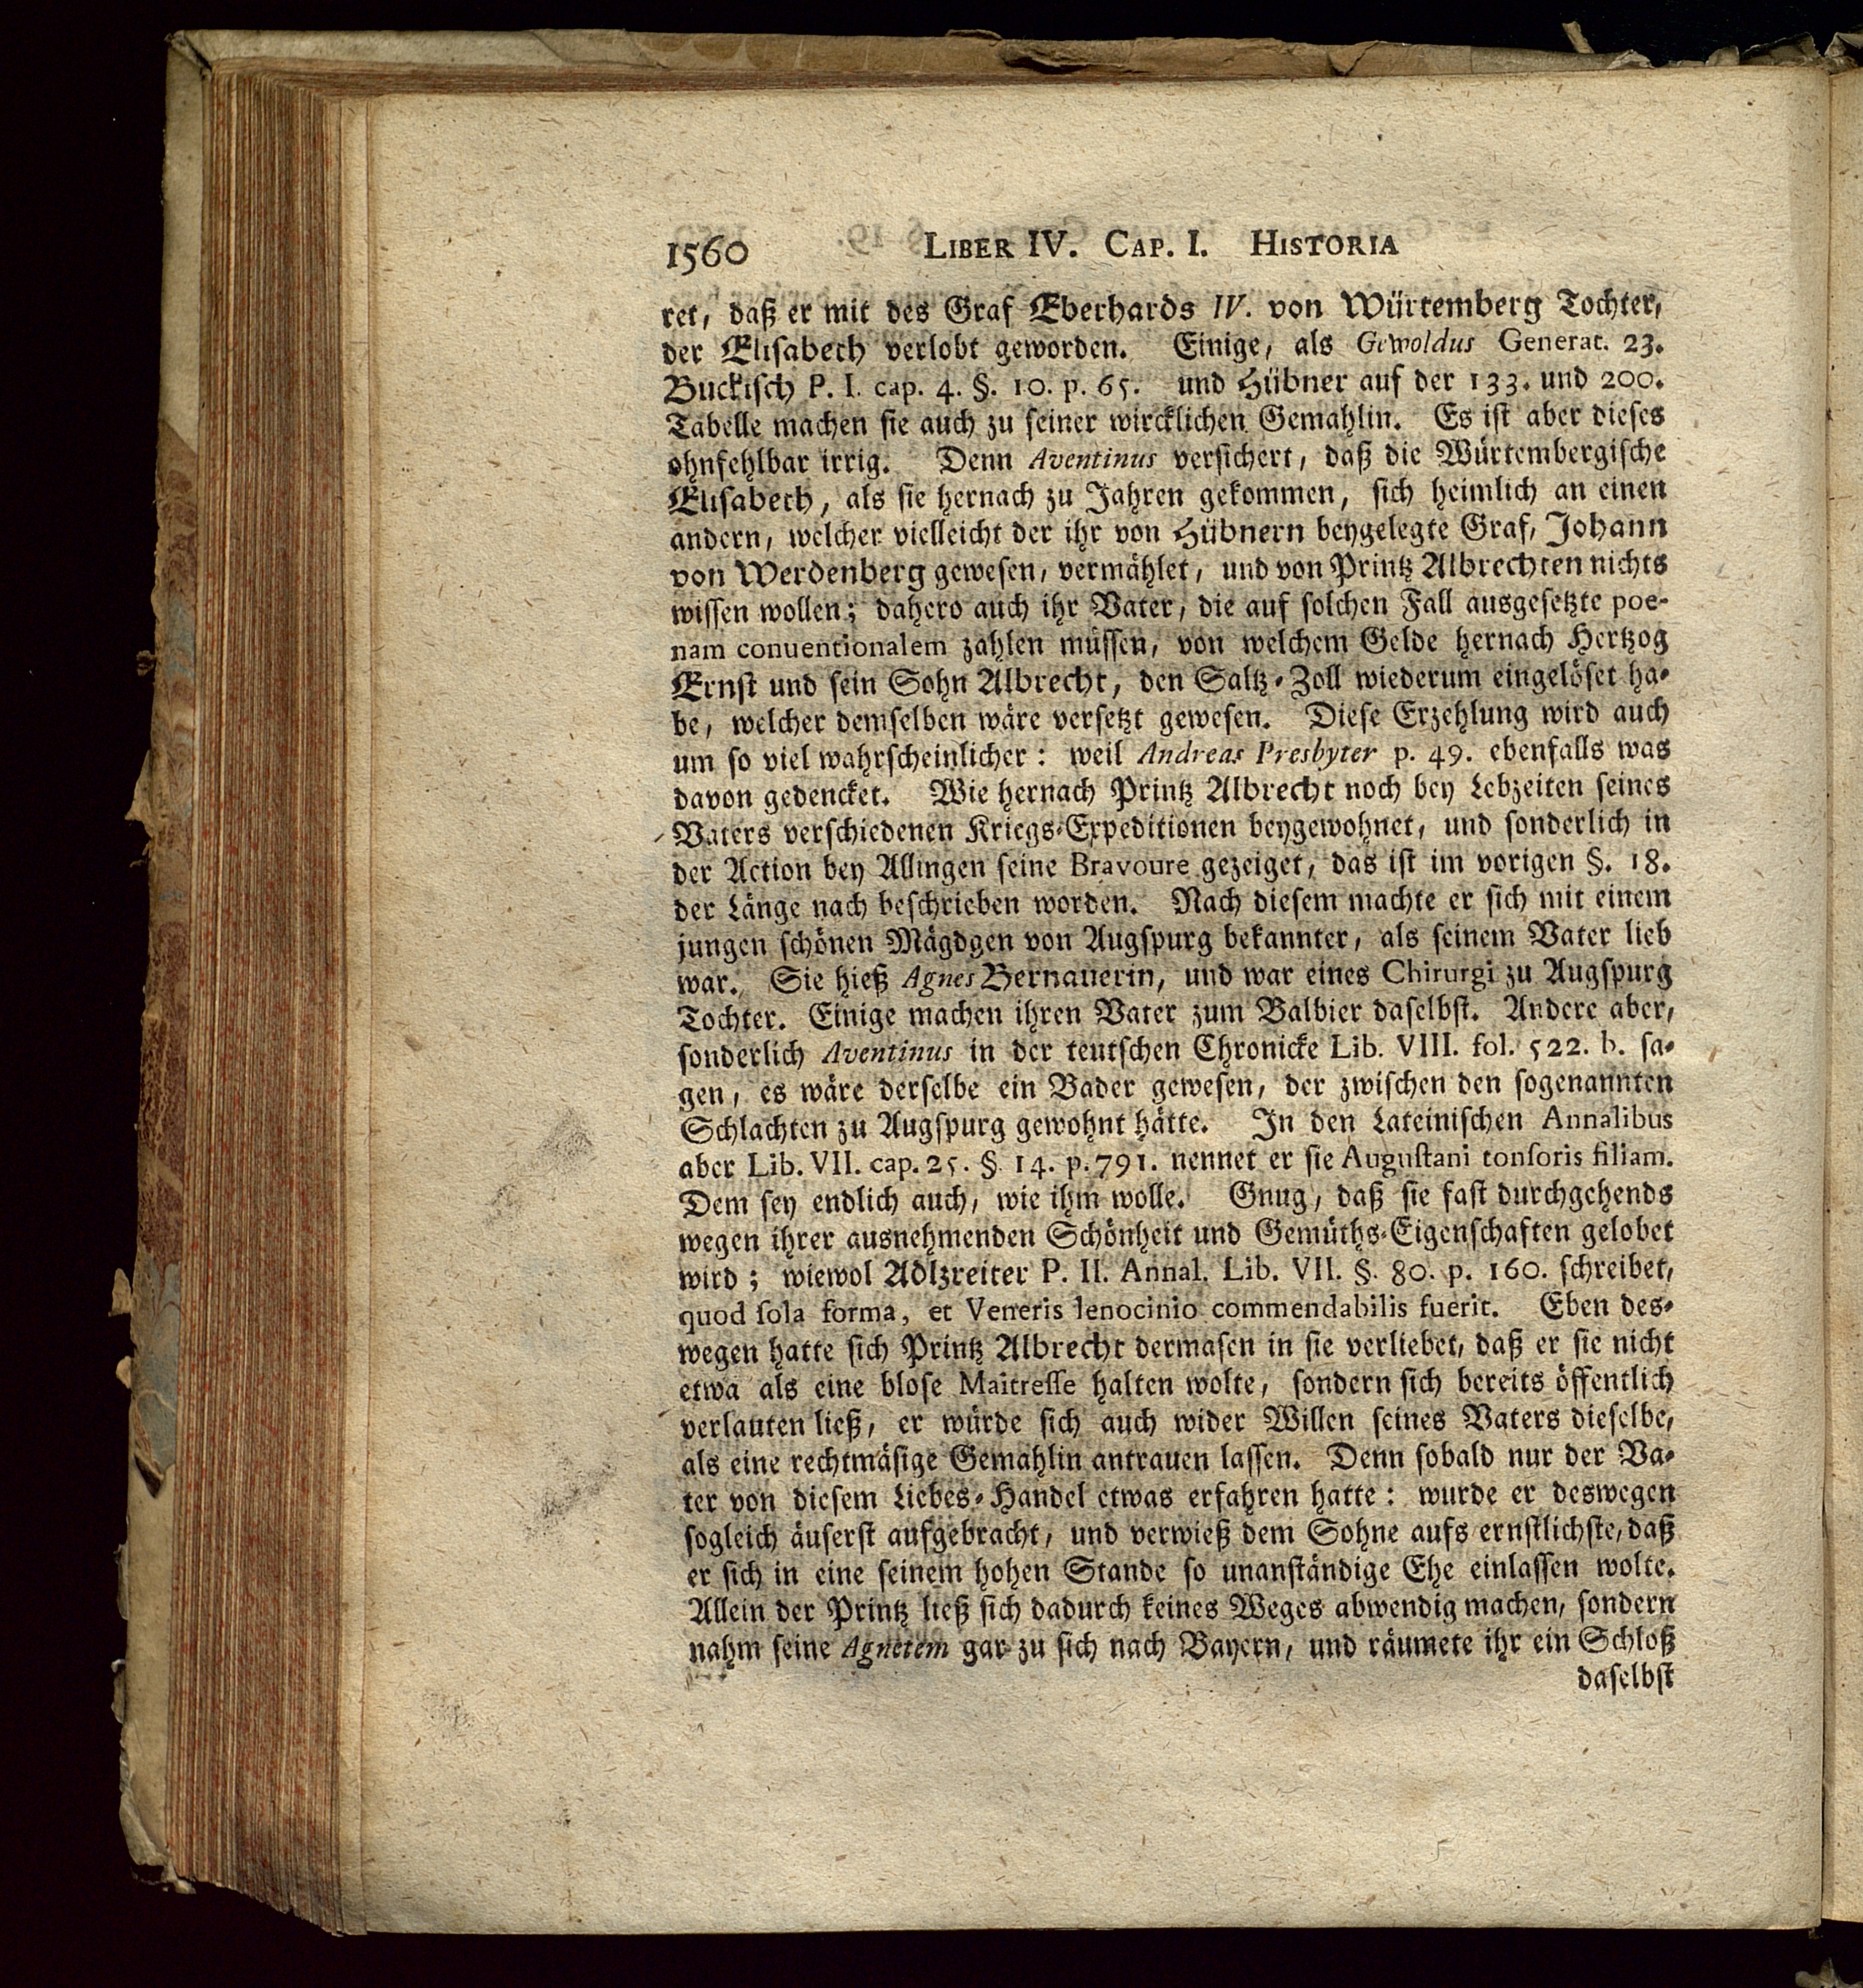 1560 LIBER IV. CAP. I. HISTORIA
ret, daß er mit des Graf Eberhards IV. von Würtemberg Tochter,
der Elisabeth verlobt geworden. Einige, als Gewoldus Generat. 23.
Buckisch P. I. cap. 4. §. 10. p. 65. und Hübner auf der 133. und 200.
Tabelle machen sie auch zu seiner wircklichen Gemahlin. Es ist aber dieses
ohnfehlbar irrig. Denn Aventinus versichert, daß die Würtembergische
Elisabeth, als sie hernach zu Jahren gekommen, sich heimlich an einen
andern, welcher vielleicht der ihr von Hübnern beygelegte Graf, Johann
von Werdenberg gewesen, vermählet, und von Printz Albrechten nichts
wissen wollen; dahero auch ihr Vater, die auf solchen Fall ausgesetzte poe-
nam conuentionalem zahlen müssen, von welchem Gelde hernach Hertzog
Ernst und sein Sohn Albrecht, den Saltz-Zoll wiederum eingelöset ha-
be, welcher demselben wäre versetzt gewesen. Diese Erzehlung wird auch
um so viel wahrscheinlicher: weil Andreas Presbyter p. 49. ebenfalls was
davon gedencket. Wie hernach Printz Albrecht noch bey Lebzeiten seines
Vaters verschiedenen Kriegs-Expeditionen beygewohnet, und sonderlich in
der Action bey Allingen seine Bravoure gezeiget, das ist im vorigen §. 18.
der Länge nach beschrieben worden. Nach diesem machte er sich mit einem
jungen schönen Mägdgen von Augspurg bekannter, als seinem Vater lieb
war. Sie hieß Agnes Bernauerin, und war eines Chirurgi zu Augspurg
Tochter. Einige machen ihren Vater zum Balbier daselbst. Andere aber,
sonderlich Aventinus in der teutschen Chronicke Lib. VIII. fol. 522. b. sa-
gen, es wäre derselbe ein Bader gewesen, der zwischen den sogenannten
Schlachten zu Augspurg gewohnt hätte. In den Lateinischen Annalibus
aber Lib. VII. cap. 25. § 14. p. 791. nennet er sie Augustani tonsoris filiam.
Dem sey endlich auch, wie ihm wolle. Gnug, daß sie fast durchgehends
wegen ihrer ausnehmenden Schönheit und Gemüths-Eigenschaften gelobet
wird; wiewol Adlzreiter P. II. Annal. Lib. VII. §. 80. p. 160. schreibet,
quod sola forma, et Veneris lenocinio commendabilis fuerit. Eben des-
wegen hatte sich Printz Albrecht dermasen in sie verliebet, daß er sie nicht
etwa als eine blose Maitresse halten wolte, sondern sich bereits öffentlich
verlauten ließ, er würde sich auch wider Willen seines Vaters dieselbe,
als eine rechtmäsige Gemahlin antrauen lassen. Denn sobald nur der Va-
ter von diesem Liebes-Handel etwas erfahren hatte: wurde er deswegen
sogleich äuserst aufgebracht, und verwieß dem Sohne aufs ernstlichste, daß
er sich in eine seinem hohen Stande so unanständige Ehe einlassen wolte.
Allein der Printz ließ sich dadurch keines Weges abwendig machen, sondern
nahm seine Agnetem gar zu sich nach Bayern, und räumete ihr ein Schloß
daselbst